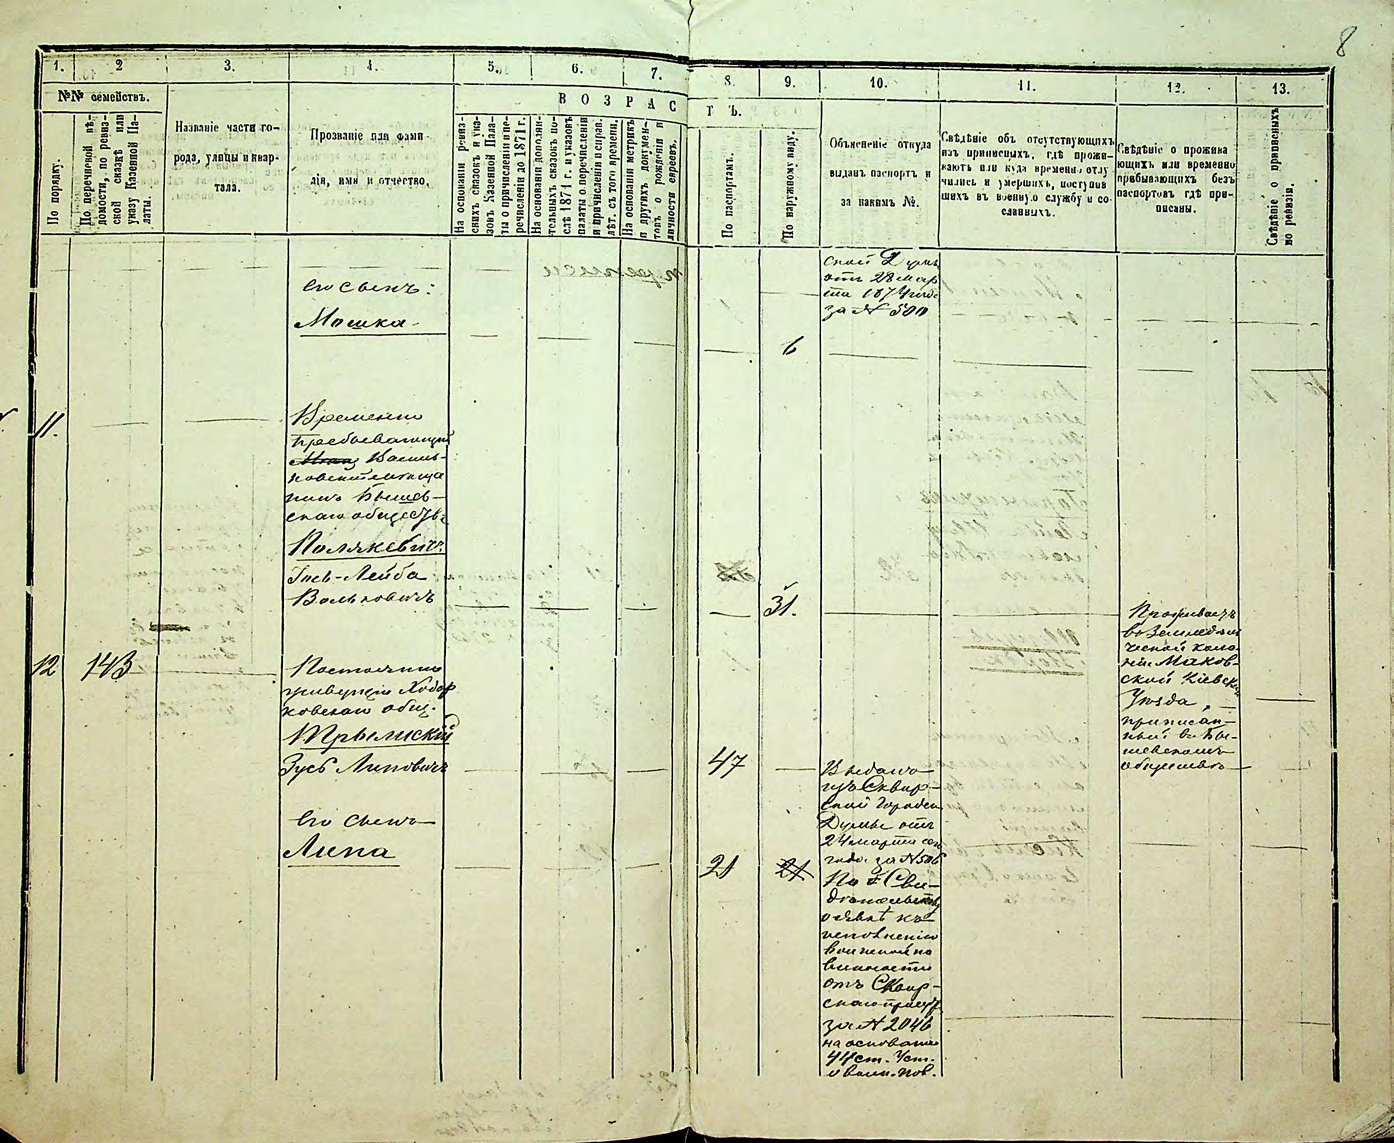 8
1.
2
3.
4.
5.
6.
7.
8.
9.
10.
11.
12.
13.
№№ семействъ.
По порядку.
По перечневой вѣ-
домости, по ревиз-
ской сказкѣ или
указу Казенной Па-
латы.
Названіе части го-
рода, улицы и квар-
тала.
Прозваніе или фами-
лія, имя и отчество.
ВОЗРАС
ТЪ.
На основаніи ревиз-
скихъ сказокъ и ука-
зовъ Казенной Пала-
ты о причисленіи и пе-
речисленіи до 1871 г.
На основаніи дополни-
тельныхъ сказокъ по-
слѣ 1871 г. и указовъ
палаты о перечисленіи
и причисленіи и справ.
лѣт. съ того времени.
На основаніи метрикъ
и другихъ докумен-
товъ о рожденіи и
личности евреевъ.
По паспортамъ.
По наружному виду.
Объясненіе откуда
выданъ паспортъ и
за какимъ №.
Свѣдѣніе объ отсутствующихъ
изъ приписныхъ, гдѣ прожи-
ваютъ или куда временно отлу
чились и умершихъ, поступив
шихъ въ военную службу и со-
сланныхъ.
Свѣдѣніе о прожива
ющихъ или временно
пребывающихъ безъ
паспортовъ гдѣ при-
писаны.
Свѣдѣніе о приписныхъ
по ревизіи.
его сынъ:
Мошка
6
ской Думы
отъ 28 мар
та 1874 года
за № 500
11.
Временно
пребывающій
Василь-
ковскій мѣща
нинъ Бышев-
скаго общества
Полякевичъ
Іось-Лейба
Вольковичъ
31.
Проживаетъ
въ Земледѣль
ческой коло
ніи Маков-
ской Кіевск.
Уѣзда,
приписан-
ный въ Бы-
шевскомъ
обществѣ
12
143
Постоянно
живущій Ходор
ковскаго общ.
Трылискій
Зусь Липовичъ
47
Выданъ
изъ Сквир-
ской Городск.
Думы отъ
24 марта сего
года за № 506
его сынъ
Липа
21
21
По Сви-
дѣтельству
о явкѣ къ
исполненію
воинской по
винности
отъ Сквир-
скаго присут.
за № 2046
на основаніи
44 ст. Уст.
о воин. пов.